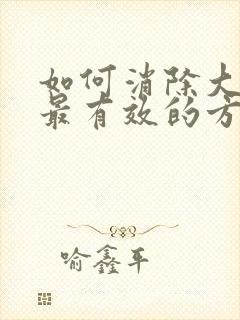 如何消除大
最有效的方
喻鑫平